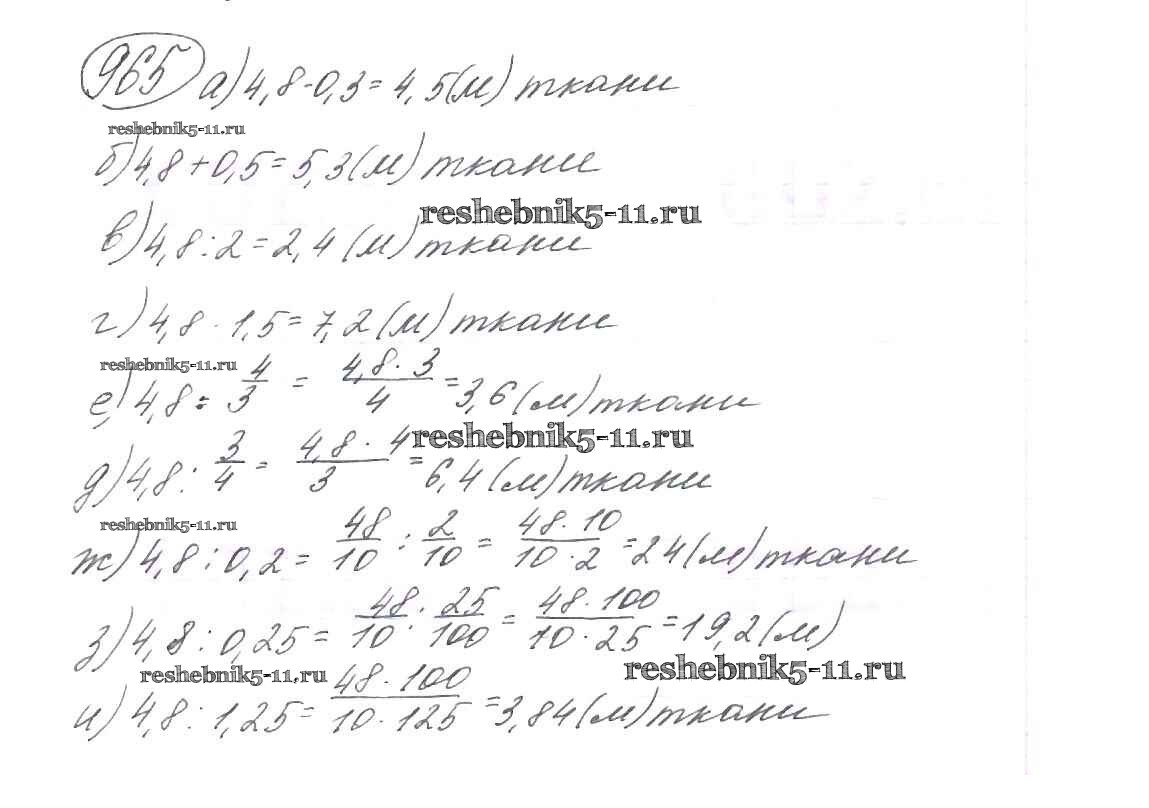 965 а) 4,8-0,3=4,5(м) ткани
reshebnik5-11.ru
б) 4,8+0,5=5,3(м) ткани
reshebnik5-11.ru
в) 4,8:2=2,4(м) ткани
г) 4,8·1,5=7,2(м) ткани
reshebnik5-11.ru
е) 4,8 : 4/3 = 4,8·3/4 = 3,6(м) ткани
reshebnik5-11.ru
д) 4,8 : 3/4 = 4,8·4/3 = 6,4(м) ткани
reshebnik5-11.ru
ж) 4,8:0,2 = 48/10 : 2/10 = 48·10/10·2 = 24(м) ткани
з) 4,8:0,25 = 48/10 : 25/100 = 48·100/10·25 = 19,2(м)
reshebnik5-11.ru
reshebnik5-11.ru
и) 4,8:1,25 = 48·100/10·125 = 3,84(м) ткани